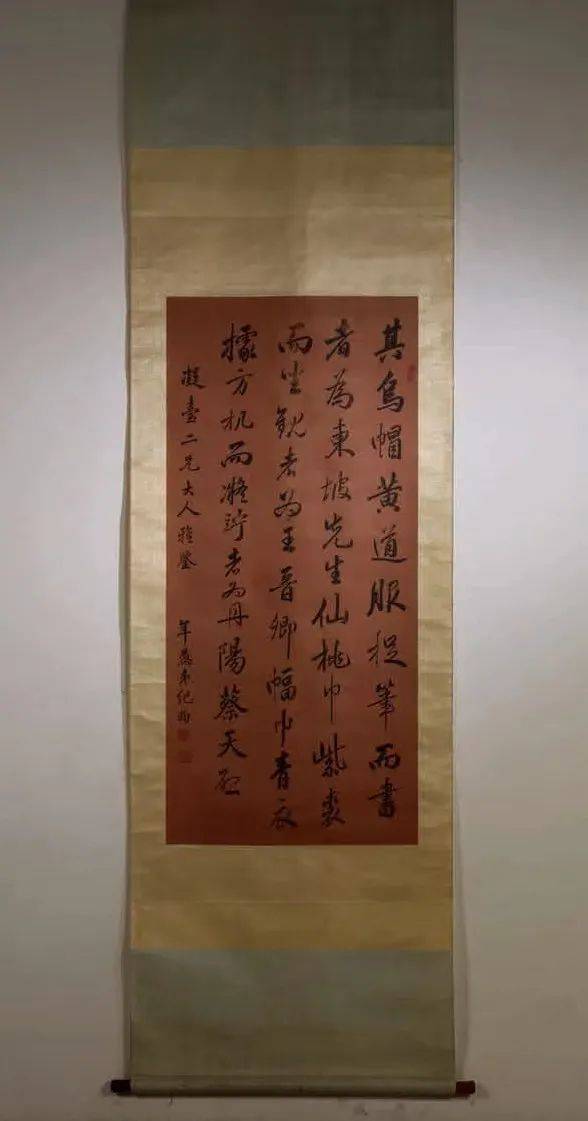 其烏帽黄道服捉筆而書
者為東坡先生仙桃巾紫裘
而坐觀者為王晉卿幅巾青衣
據方机而凝竚者為丹陽蔡天啟
凝臺二兄大人雅鑒
年愚弟紀昀